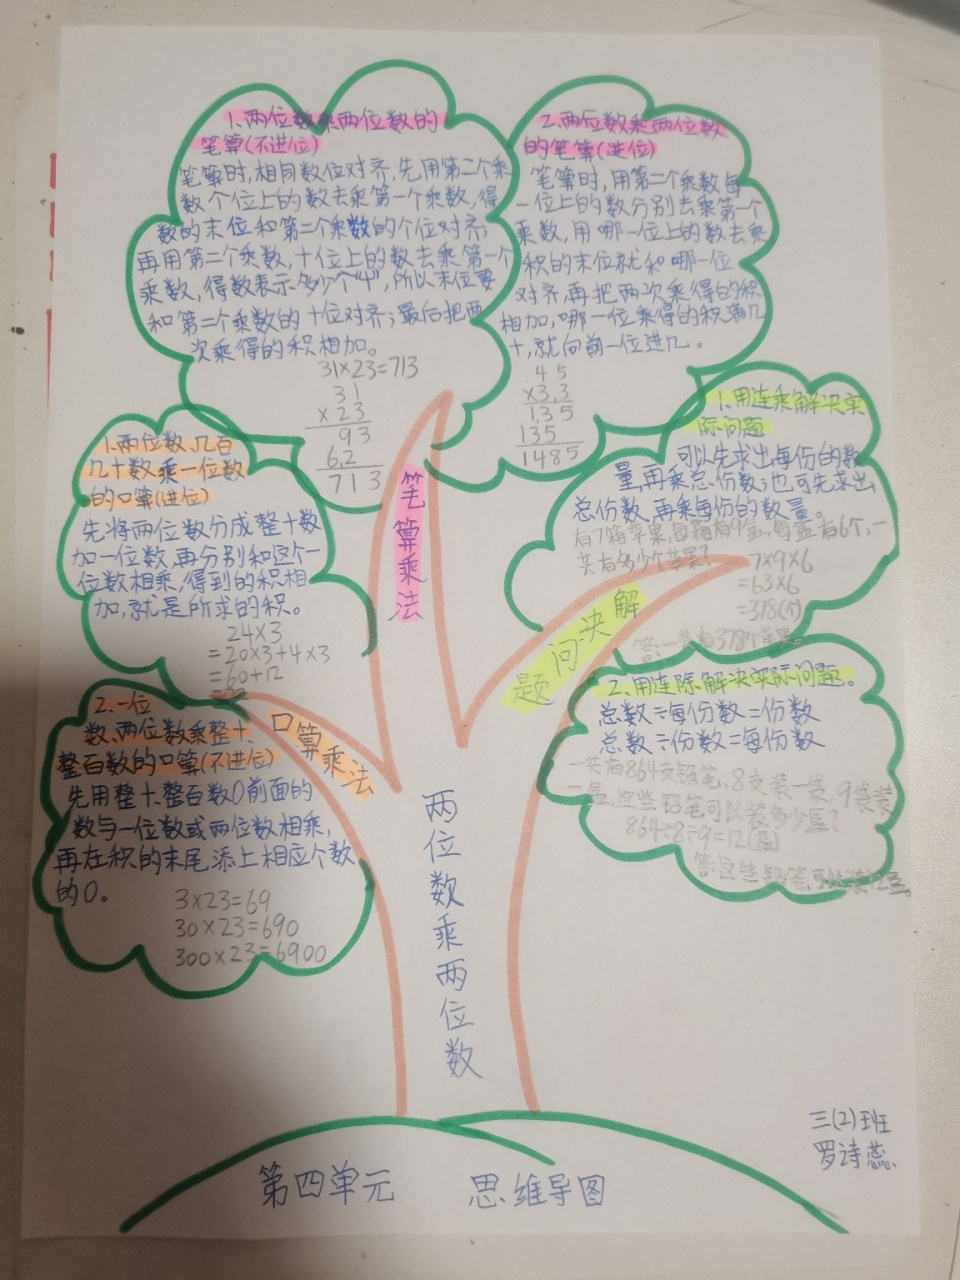 1.两位数乘两位数的
笔算(不进位)
笔算时,相同数位对齐,先用第二个乘
数个位上的数去乘第一个乘数,得
数的末位和第二个乘数的个位对齐;
再用第二个乘数,十位上的数去乘第一个
乘数,得数表示多少个“十”,所以末位要
和第二个乘数的十位对齐;最后把两
次乘得的积相加。
31×23=713
31
×23
93
6.2
713
2.两位数乘两位数
的笔算(进位)
笔算时,用第二个乘数每
一位上的数分别去乘第一个
乘数,用哪一位上的数去乘
积的末位就和哪一位
对齐,再把两次乘得的积
相加,哪一位乘得的积满几
十,就向前一位进几。
45
×3.3
1.35
135
1485
1.两位数、几百
几十数乘一位数
的口算(进位)
先将两位数分成整十数
加一位数,再分别和这个一
位数相乘,得到的积相
加,就是所求的积。
24×3
=20×3+4×3
=60+12
2.一位
数、两位数乘整十、
整百数的口算(不进位)
先用整十、整百数0前面的
数与一位数或两位数相乘,
再在积的末尾添上相应个数
的0。
3×23=69
30×23=690
300×23=6900
1.用连乘解决实
际问题
可以先求出每份的数
量,再乘总份数;也可先求出
总份数,再乘每份的数量。
有7箱苹果,每箱有9盒,每盒有6个,一
共有多少个苹果?
7×9×6
=63×6
=378(个)
答:一共有378个苹果。
2.用连除解决实际问题。
总数÷每份数=份数
总数÷份数=每份数
一共有864支铅笔,8支装一袋,9袋装
一盒,这些铅笔可以装多少盒?
864÷8÷9=12(盒)
答:这些铅笔可以装12盒。
笔算乘法
口算乘法
解决问题
两位数乘两位数
第四单元 思维导图
三(2)班
罗诗蕊